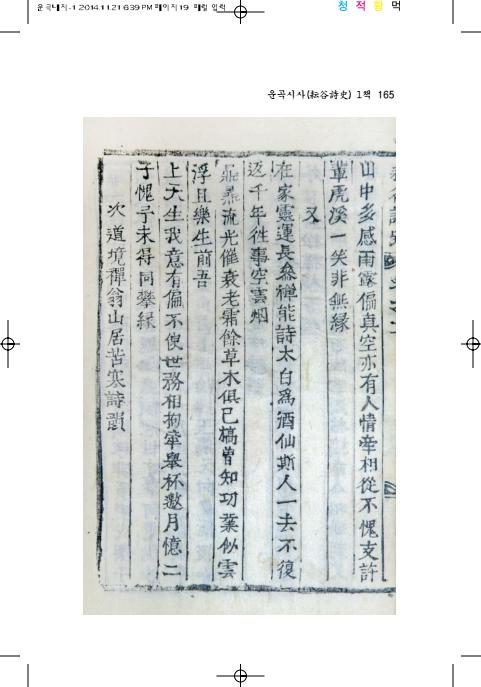 운곡대지-1 2014.11.21 6:39 PM 페이지19 매킬 입력
청 적 황 먹
운곡시사(耘谷詩史) 1책 165
山中多感雨露偏真空亦有人情牽相從不愧支許
輩虎溪一笑非無緣
又
在家靈運長叅禪能詩太白爲酒仙斯人一去不復
返千年往事空雲烟
鼎鼎流光催衰老霜餘草木俱已槁曽知功葉似雲
浮且樂生前吾
上天生我意有偏不使世務相拘牽舉杯邀月憶二
子愧予未得同攀縁
次道境禪翁山居苦寒詩韻